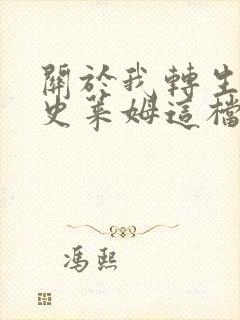 關於我轉生
史萊姆這檔
馮熙